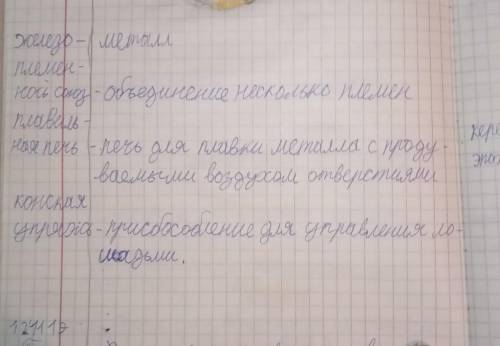 железо - металл
племен-
ной союз - объединение несколько племен
плавиль-
ная печь - печь для плавки металла с проду-
ваемыми воздухом отверстиями
конская
упряжь - приспособление для управления ло-
шадьми.